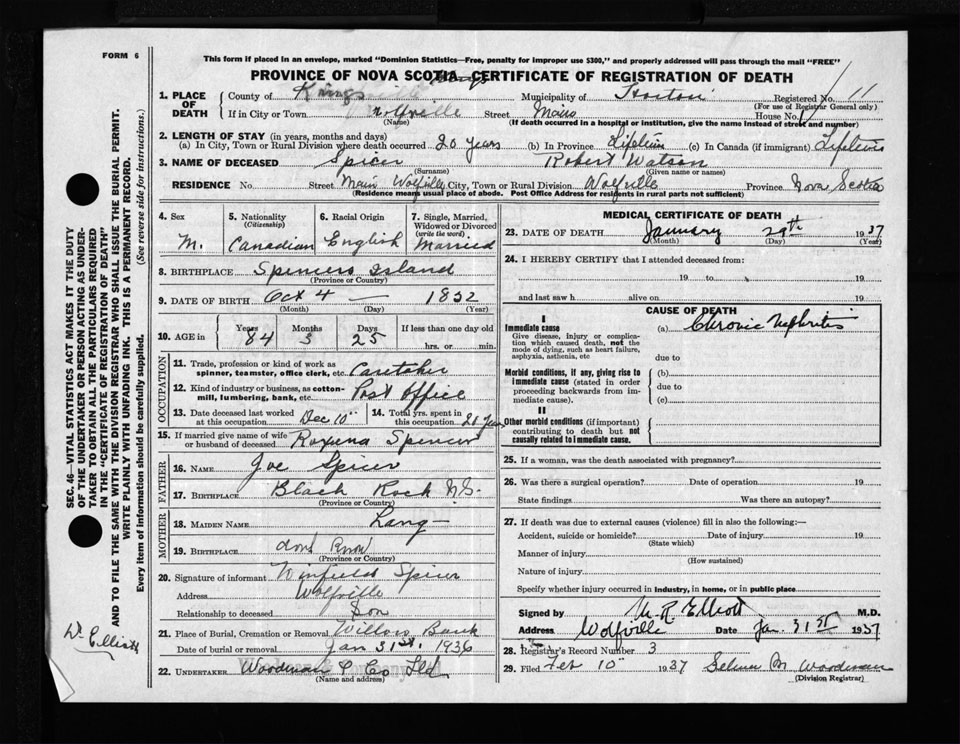 FORM 6
This form if placed in an envelope, marked "Dominion Statistics—Free, penalty for improper use $300," and properly addressed will pass through the mail "FREE"
PROVINCE OF NOVA SCOTIA, CERTIFICATE OF REGISTRATION OF DEATH
1. PLACE OF DEATH County of Kings Municipality of Horton Registered No. 11
(For use of Registrar General only)
If in City or Town Wolfville Street Main House No.
(Name) (If death occurred in a hospital or institution, give the name instead of street and number)
2. LENGTH OF STAY (in years, months and days)
(a) In City, Town or Rural Division where death occurred 20 years (b) In Province Lifetime (c) In Canada (if immigrant) Lifetime
3. NAME OF DECEASED Spicer Robert Watson
(Surname) (Given name or names)
RESIDENCE No. Street Main Wolfville City, Town or Rural Division Wolfville Province Nova Scotia
(Residence means usual place of abode. Post Office Address for residents in rural parts not sufficient)
4. Sex 5. Nationality (Citizenship) 6. Racial Origin 7. Single, Married, Widowed or Divorced (write the word)
M. Canadian English Married
8. BIRTHPLACE Spencers Island
(Province or Country)
9. DATE OF BIRTH Oct 4 — 1852
(Month) (Day) (Year)
10. AGE in Years Months Days If less than one day old
84 3 25 hrs. or min.
OCCUPATION
11. Trade, profession or kind of work as spinner, teamster, office clerk, etc. Caretaker
12. Kind of industry or business, as cotton-mill, lumbering, bank, etc. Post Office
13. Date deceased last worked at this occupation Dec 10" 14. Total yrs. spent in this occupation 20 years
15. If married give name of wife or husband of deceased Roxena Spencer
FATHER
16. NAME Joe Spicer
17. BIRTHPLACE Black Rock N.S.
(Province or Country)
MOTHER
18. MAIDEN NAME Lang —
19. BIRTHPLACE dont know
(Province or Country)
20. Signature of informant Winfield Spicer
Address Wolfville
Relationship to deceased Son
21. Place of Burial, Cremation or Removal Willow Bank
Date of burial or removal Jan 31st, 1936
22. UNDERTAKER Woodman & Co Ltd
(Name and address)
MEDICAL CERTIFICATE OF DEATH
23. DATE OF DEATH January 29th 1937
(Month) (Day) (Year)
24. I HEREBY CERTIFY that I attended deceased from:
19 to 19
and last saw h alive on 19
CAUSE OF DEATH
I
Immediate cause (a) Chronic Nephritis
Give disease, injury or complication which caused death, not the mode of dying, such as heart failure, asphyxia, asthenia, etc due to
Morbid conditions, if any, giving rise to immediate cause (stated in order proceeding backwards from immediate). (b) due to (c)
II
Other morbid conditions (if important) contributing to death but not causally related to immediate cause.
25. If a woman, was the death associated with pregnancy?
26. Was there a surgical operation? Date of operation 19
State findings Was there an autopsy?
27. If death was due to external causes (violence) fill in also the following:—
Accident, suicide or homicide? Date of injury 19
(State which)
Manner of injury
(How sustained)
Nature of injury
Specify whether injury occurred in industry, in home, or in public place
Signed by M.D.
Address Wolfville Date Jan. 31st 1937
28. Registrar's Record Number 3
29. Filed Feb 10" 1937 Selina M Woodman
(Division Registrar)
SEC. 46—VITAL STATISTICS ACT MAKES IT THE DUTY
OF THE UNDERTAKER OR PERSON ACTING AS UNDER-
TAKER TO OBTAIN ALL THE PARTICULARS REQUIRED
IN THE "CERTIFICATE OF REGISTRATION OF DEATH"
AND TO FILE THE SAME WITH THE DIVISION REGISTRAR WHO SHALL ISSUE THE BURIAL PERMIT.
WRITE PLAINLY WITH UNFADING INK. THIS IS A PERMANENT RECORD.
Every item of information should be carefully supplied. (See reverse side for instructions.)
Dr Elliott